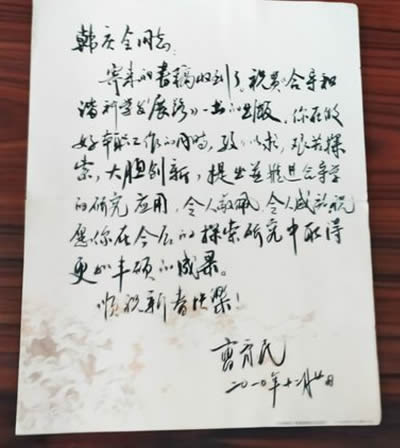 韩庆全同志:
寄来的书稿收到了,祝贺《合导和
谐科学发展路》一书的出版。你在做
好本职工作的同时,孜孜以求,艰苦探
索,大胆创新,提出并推进合导学
的研究应用,令人敬佩,令人感动。祝
愿你在今后的探索研究中取得
更加丰硕的成果。
顺祝新春快乐!
二〇一〇年十二月廿日